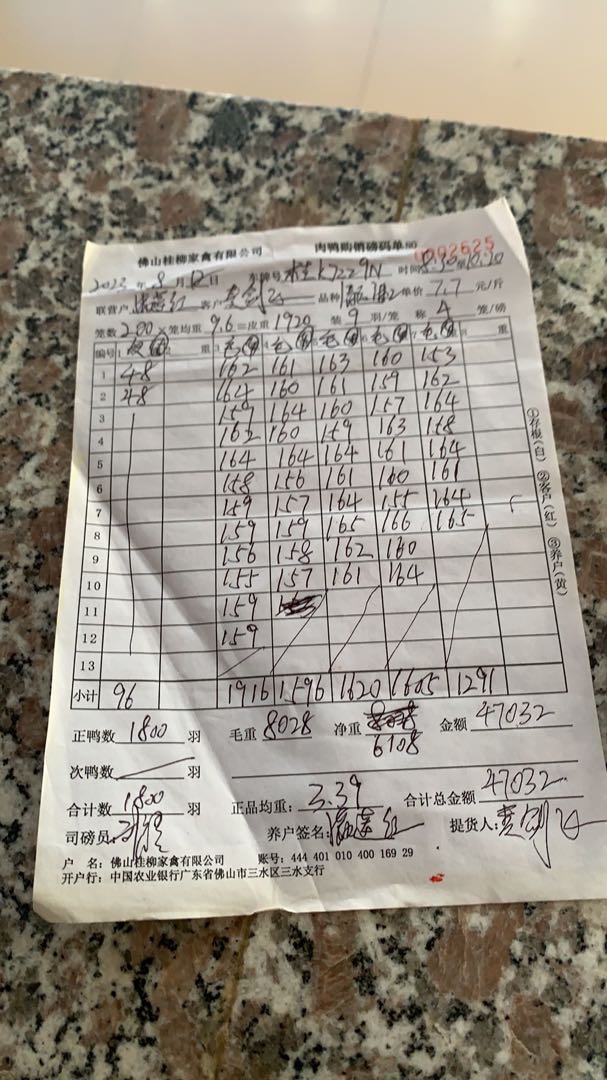 佛山桂柳家禽有限公司 肉鸭购销磅码单 NO 0002625
2023年8月12日 车牌号 K7229N 时间8:30至10:30
联营户 红 客户 剑 品种 单价7.7元/斤
笼数200×笼均重9.6=皮重1920 装9羽/笼 称4笼/磅
编号 重 重
1 48 162 161 163 160 153
2 48 164 160 161 159 162
3 159 164 160 157 164
4 162 160 159 163 158
5 164 164 164 161 164
6 158 156 161 160 161
7 159 157 164 155 164
8 159 159 165 166 165
9 156 158 162 160
10 155 157 161 164
11 159
12 159
13
小计 96 1916 1596 1620 1605 1291
正鸭数1800羽 毛重8028 净重6108 金额47032
次鸭数 羽
合计数1800羽 正品均重:3.39 合计总金额47032
司磅员: 养户签名: 红 提货人: 剑
户 名:佛山桂柳家禽有限公司 账号:444 401 010 400 169 29
开户行:中国农业银行广东省佛山市三水区三水支行
①存根(白) ②客户(红) ③养户(黄)